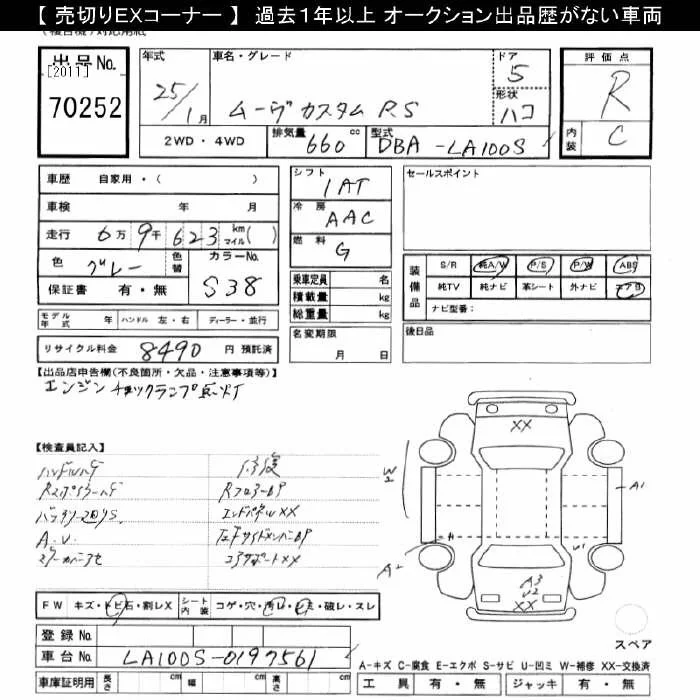 【 売切りEXコーナー 】 過去1年以上 オークション出品歴がない車両
出品No.
[2011]
70252
年式
25/1月
車名・グレード
ムーヴ カスタム RS
ドア
5
形状
ハコ
評価点
R
内装
C
2WD ・ 4WD
排気量
660 cc
型式
DBA-LA100S
車歴 自家用・( )
車検 年 月
走行 6万9千623 km マイル( )
色 グレー 色替 カラーNo. S38
保証書 有・無
シフト
1AT
冷房
AAC
燃料
G
乗車定員 名
積載量 kg
総重量 kg
名変期限
月 日
セールスポイント
装備品
S/R 純A/W P/S P/W ABS
純TV 純ナビ 革シート 外ナビ エアB
ナビ型番:
後日品
モデル年式 年 ハンドル 左・右 ディーラー・並行
リサイクル料金 8490 円 預託済
【出品店申告欄(不良箇所・欠品・注意事項等)】
エンジンチェックランプ点灯
【検査員記入】
A.U.
コアサポートXX
XX
W2
A1
A2
A3
U2
XX
FW キズ・トビ石・割レX シート内装 コゲ・穴・汚レ・シミ・破レ・スレ
登録No.
車台No. LA100S-0197561
車庫証明用 長さ cm 幅 cm 高さ cm
スペア
A-キズ C-腐食 E-エクボ S-サビ U-凹ミ W-補修 XX-交換済
工具 有・無 ジャッキ 有・無